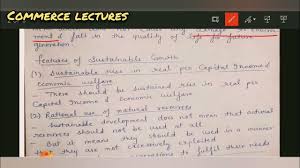 Commerce lectures
ment & fall in the quality of life for future
generation.
Features of Sustainable Growth
(1) Sustainable rise in real per Capital Income &
economic welfare
- There should be sustained rise in real per
Capital Income & Economic Welfare
(2) Rational use of natural resources
- Sustainable development does not mean that
resources should not be used at all.
- But it means they should be used in a manner
they are not excessively exploited
to fulfil their needs